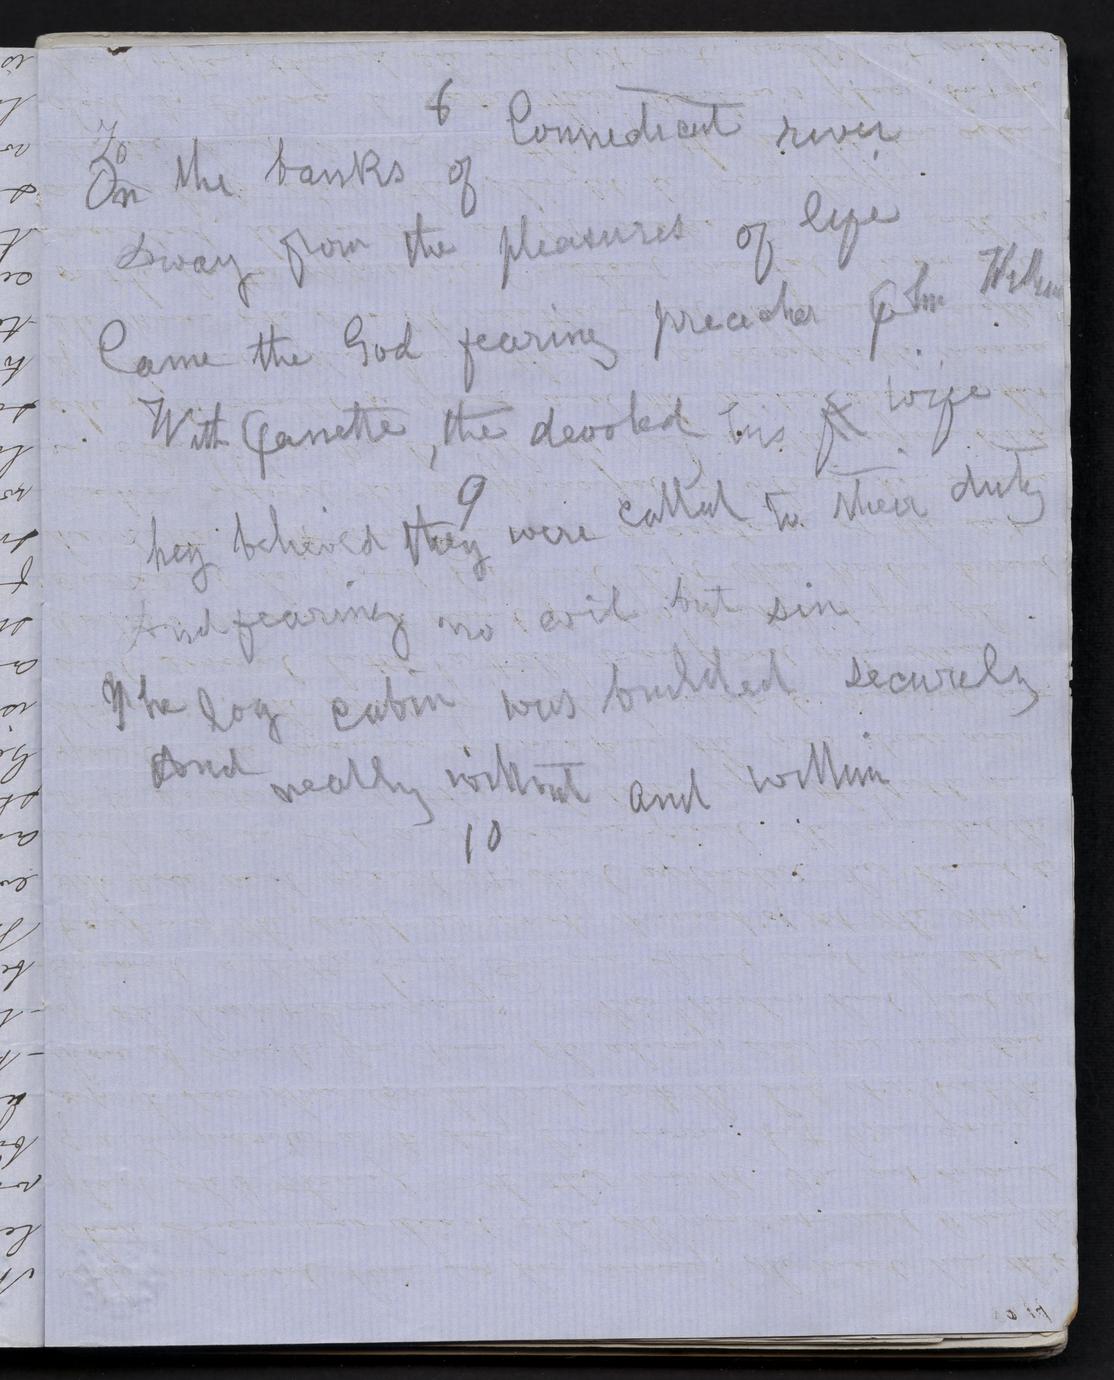 8
To
On the banks of Connecticut river
Away from the pleasures of life
Came the God fearing preacher John
With Janette, the devoted his wife
9
hey believed they were called to their duty
And fearing no evil but sin
The log cabin was builded securely
And neatly without and within
10